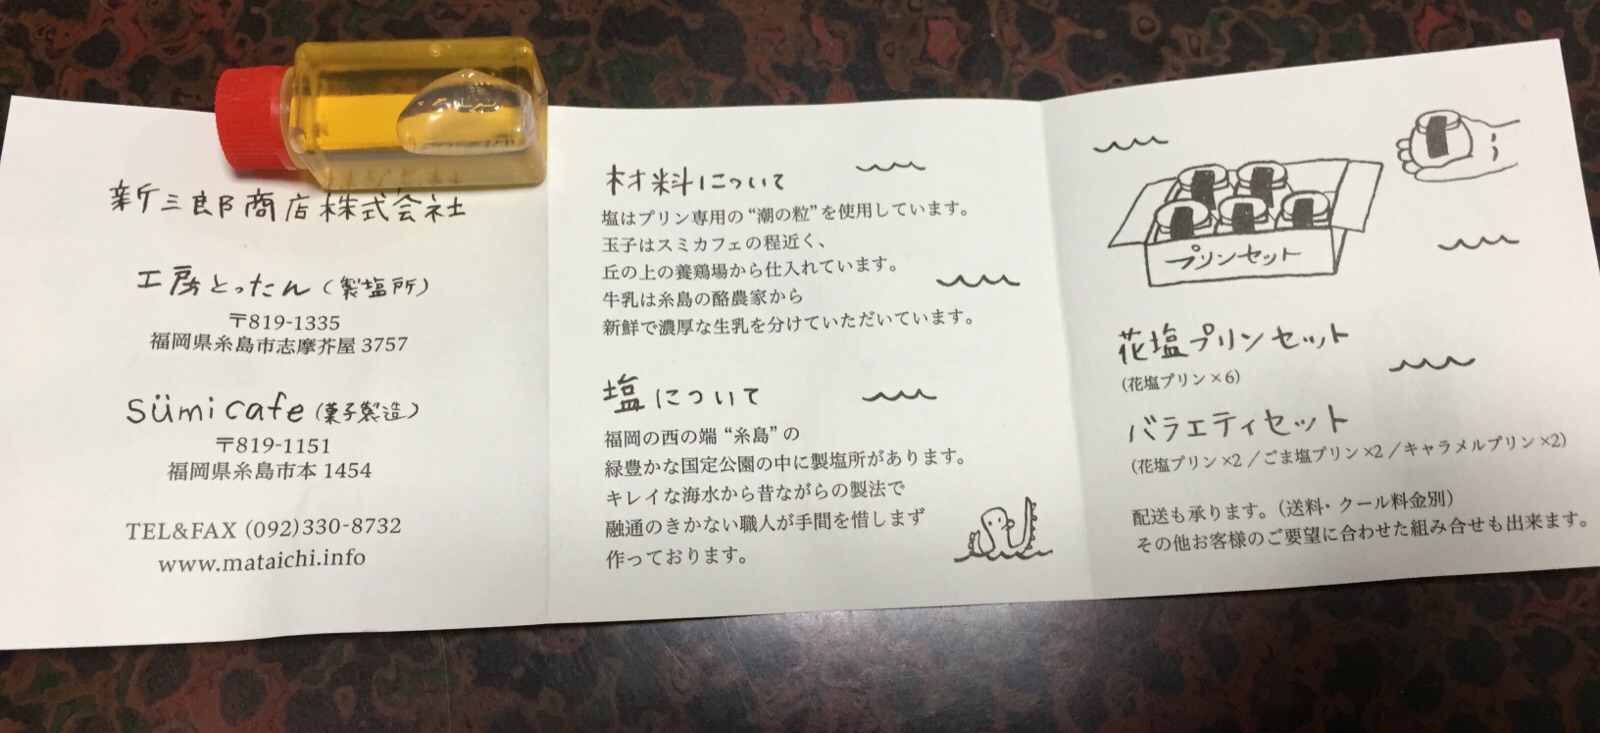 新三郎商店株式会社
工房とったん（製塩所）
〒819-1335
福岡県糸島市志摩芥屋 3757
sümi cafe（菓子製造）
〒819-1151
福岡県糸島市本 1454
TEL&FAX (092)330-8732
www.mataichi.info
材料について
塩はプリン専用の“潮の粒”を使用しています。
玉子はスミカフェの程近く、
丘の上の養鶏場から仕入れています。
牛乳は糸島の酪農家から
新鮮で濃厚な生乳を分けていただいています。
塩について
福岡の西の端“糸島”の
緑豊かな国定公園の中に製塩所があります。
キレイな海水から昔ながらの製法で
融通のきかない職人が手間を惜しまず
作っております。
プリンセット
花塩プリンセット
（花塩プリン×6）
バラエティセット
（花塩プリン×2／ごま塩プリン×2／キャラメルプリン×2）
配送も承ります。（送料・クール料金別）
その他お客様のご要望に合わせた組み合せも出来ます。